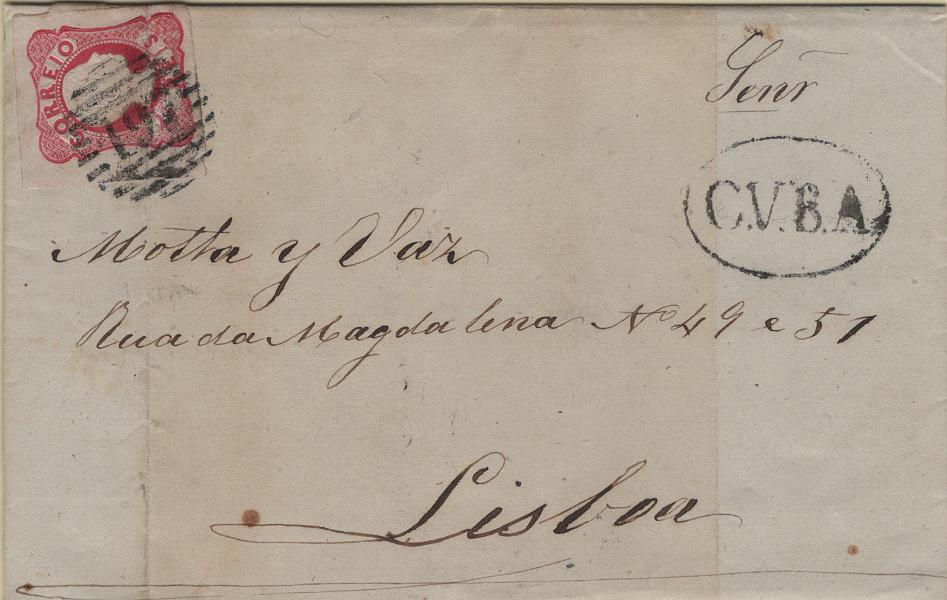 CORREIO
Senr
C.V.B.A
Motta y Vaz
Rua da Magdalena No 49 e 51
Lisboa